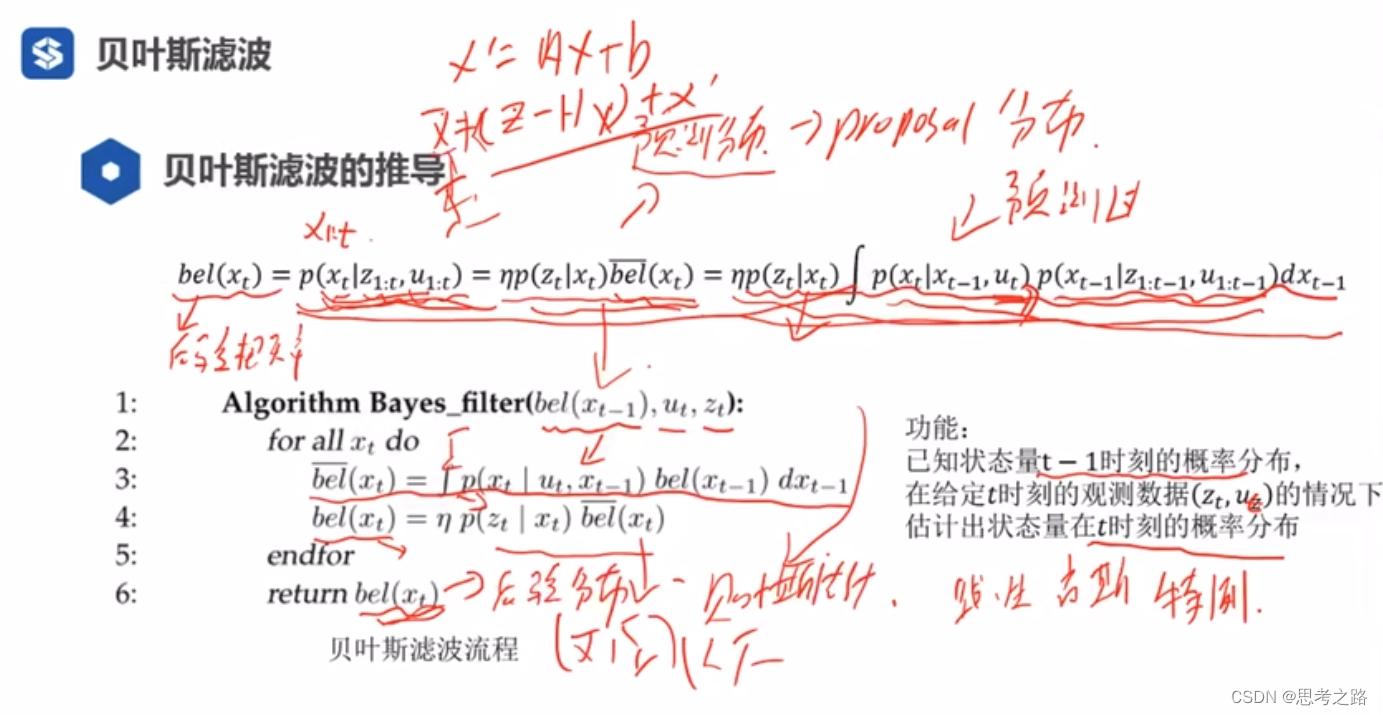 贝叶斯滤波
x' = Ax+b
预测分布 → proposal 分布.
贝叶斯滤波的推导
预测值
x1:t
bel(xₜ) = p(xₜ|z₁:ₜ, u₁:ₜ) = ηp(zₜ|xₜ)b̅e̅l̅(xₜ) = ηp(zₜ|xₜ) ∫ p(xₜ|xₜ₋₁, uₜ) p(xₜ₋₁|z₁:ₜ₋₁, u₁:ₜ₋₁)dxₜ₋₁
后验概率
1: Algorithm Bayes_filter(bel(xₜ₋₁), uₜ, zₜ):
2: for all xₜ do
3: b̅e̅l̅(xₜ) = ∫ p(xₜ | uₜ, xₜ₋₁) bel(xₜ₋₁) dxₜ₋₁
4: bel(xₜ) = η p(zₜ | xₜ) b̅e̅l̅(xₜ)
5: endfor
6: return bel(xₜ) → 后验分布
功能:
已知状态量t−1时刻的概率分布，
在给定t时刻的观测数据(zₜ, uₜ)的情况下
估计出状态量在t时刻的概率分布
贝叶斯估计. 线性 高斯 特例.
贝叶斯滤波流程
CSDN @思考之路